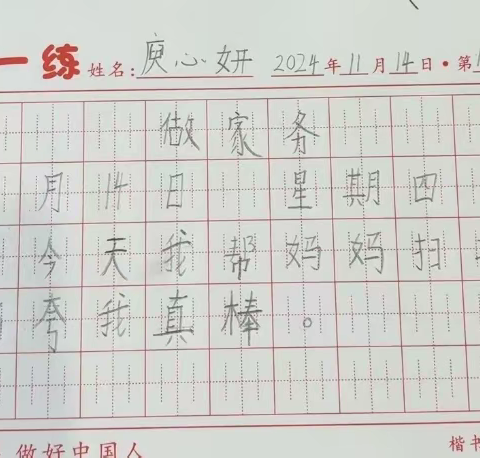 一练 姓名：庾心妍 2024年11月14日·第1
做家务
月14日 星期四
今天我帮妈妈扫
夸我真棒。
做好中国人 楷书